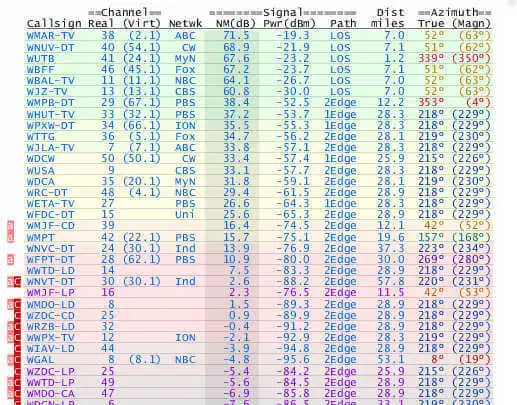 ==Channel== =======Signal======= Dist ==Azimuth==
Callsign Real (Virt) Netwk NM(dB) Pwr(dBm) Path miles True (Magn)
WMAR-TV 38 (2.1) ABC 71.5 -19.3 LOS 7.0 52° (63°)
WNUV-DT 40 (54.1) CW 68.9 -21.9 LOS 7.1 51° (62°)
WUTB 41 (24.1) MyN 67.6 -23.2 LOS 1.2 339° (350°)
WBFF 46 (45.1) Fox 67.2 -23.7 LOS 7.1 51° (62°)
WBAL-TV 11 (11.1) NBC 64.1 -26.7 LOS 7.0 52° (63°)
WJZ-TV 13 (13.1) CBS 60.8 -30.0 LOS 7.0 52° (63°)
WMPB-DT 29 (67.1) PBS 38.4 -52.5 2Edge 12.2 353° (4°)
WHUT-TV 33 (32.1) PBS 37.2 -53.7 1Edge 28.3 218° (229°)
WPXW-DT 34 (66.1) ION 35.5 -55.3 1Edge 28.3 218° (229°)
WTTG 36 (5.1) Fox 34.7 -56.2 1Edge 28.1 219° (230°)
WJLA-TV 7 (7.1) ABC 33.8 -57.1 1Edge 28.3 218° (229°)
WDCW 50 (50.1) CW 33.4 -57.4 1Edge 25.9 215° (226°)
WUSA 9 CBS 33.1 -57.7 2Edge 28.3 218° (229°)
WDCA 35 (20.1) MyN 31.8 -59.1 2Edge 28.1 219° (230°)
WRC-DT 48 (4.1) NBC 29.4 -61.5 2Edge 28.9 218° (229°)
WETA-TV 27 PBS 26.6 -64.3 1Edge 28.3 218° (229°)
WFDC-DT 15 Uni 25.6 -65.3 2Edge 28.9 218° (229°)
a WMJF-CD 39 16.4 -74.5 2Edge 12.1 42° (52°)
a WMPT 42 (22.1) PBS 15.7 -75.1 2Edge 19.6 157° (168°)
WNVC-DT 24 (30.1) Ind 13.9 -76.9 2Edge 37.3 223° (234°)
a WFPT-DT 28 (62.1) PBS 10.9 -80.0 2Edge 30.0 269° (280°)
WWTD-LD 14 7.5 -83.3 2Edge 28.9 218° (229°)
aC WNVT-DT 30 (30.1) Ind 2.6 -88.2 2Edge 57.8 220° (231°)
WMJF-LP 16 2.3 -76.5 2Edge 11.5 42° (53°)
aC WMDO-LD 8 1.5 -89.3 2Edge 28.9 218° (229°)
C WZDC-CD 25 0.9 -89.9 2Edge 28.9 218° (229°)
aC WRZB-LD 32 -0.4 -91.2 2Edge 28.9 218° (229°)
aC WWPX-TV 12 ION -2.1 -92.9 2Edge 28.3 218° (229°)
aC WIAV-LD 44 -3.9 -94.8 2Edge 28.9 218° (229°)
aC WGAL 8 (8.1) NBC -4.8 -95.6 2Edge 53.1 8° (19°)
C WZDC-LP 25 -5.4 -84.2 2Edge 25.9 215° (226°)
aC WWTD-LP 49 -5.6 -84.5 2Edge 28.9 218° (229°)
aC WMDO-CA 47 -6.9 -85.8 2Edge 28.9 218° (229°)